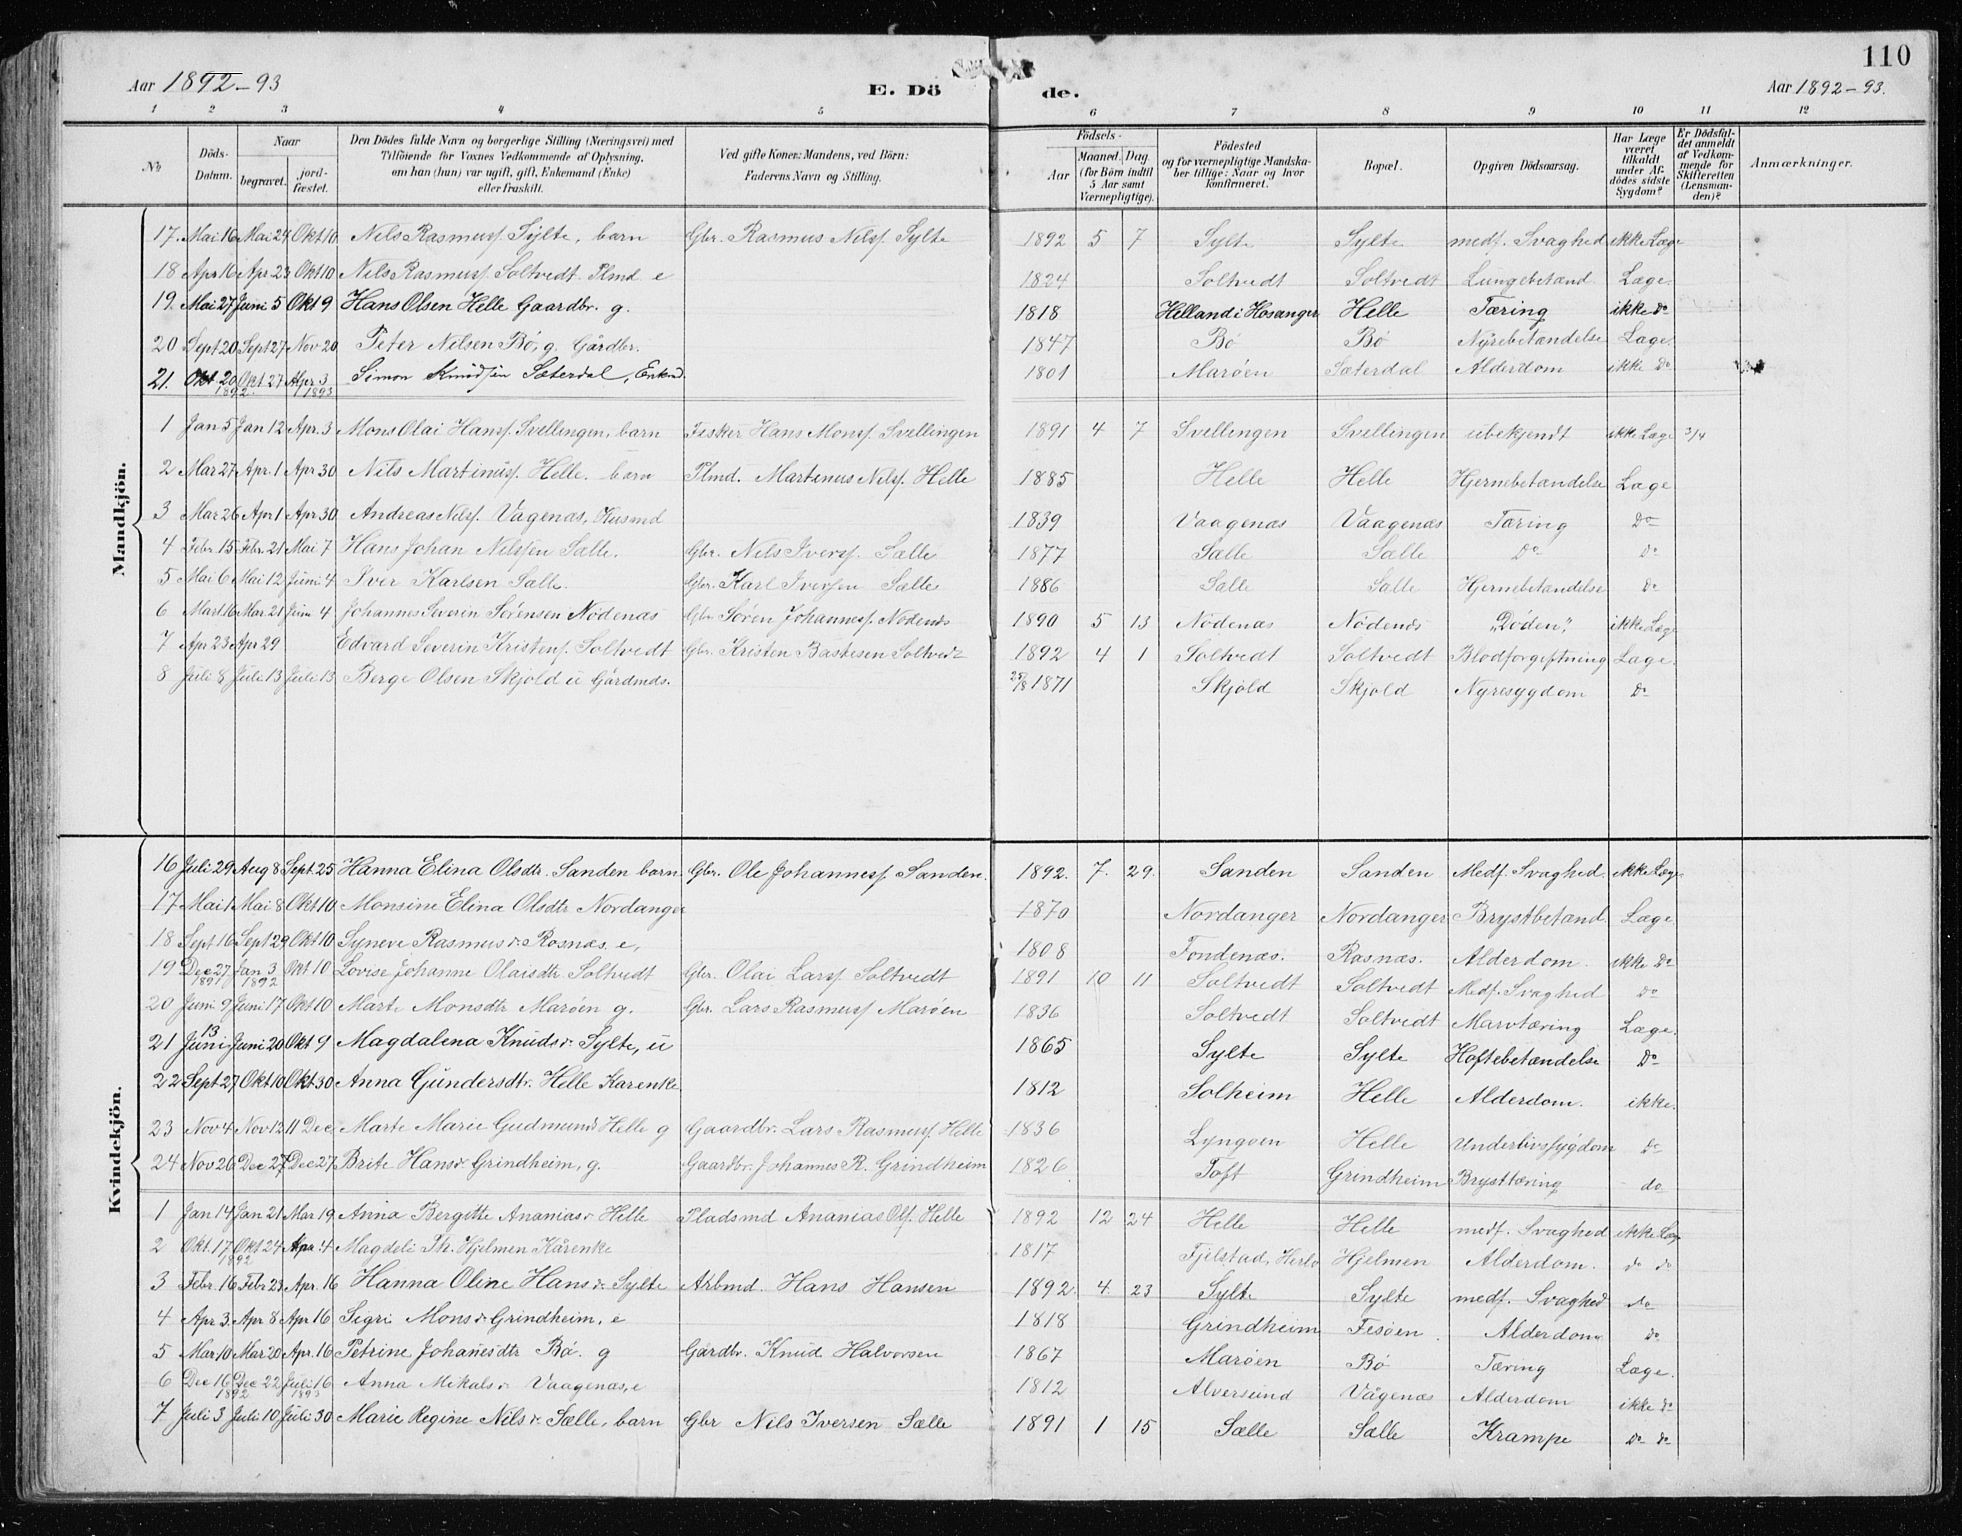 110
Aar 1892-93 E. Dö de. Aar 1892-93.
1 2 3 4 5 6 7 8 9 10 11 12
No Döds-Datum. Naar begravet. jordfæstet. Den Dödes fulde Navn og borgerlige Stilling (Næringsvei) med Tilföiende for Voxnes Vedkommende af Oplysning, om han (hun) var ugift, gift, Enkemand (Enke) eller fraskilt. Ved gifte Koner: Mandens, ved Börn: Faderens Navn og Stilling. Födsels- Aar Maaned. Dag. (for Börn indtil 5 Aar samt Værnepligtige). Födested og for værnepligtige Mandskaber tillige: Naar og hvor konfirmeret. Bopæl. Opgiven Dödsaarsag. Har Læge været tilkaldt under Afdödes sidste Sygdom? Er Dödsfaldet anmeldt af Vedkommende for Skifteretten (Lensmanden)? Anmærkninger.
Mandkjön.
17. Mai 16 Mai 24 Okt 10 Nils Rasmusf. Sylte, barn Gbr. Rasmus Nilsf. Sylte 1892 5 7 Sylte Sylte medf. Svaghed ikke Læge
18 Apr 16 Apr. 23 Okt 10 Nils Rasmusf. Soltvedt Plmd e 1824 Soltvedt Soltvedt Lungebetænd Læge.
19. Mai 27 Juni 5 Okt 9 Hans Olsen Helle Gaardbr. g. 1818 Helland i Hosanger Helle Tæring ikke do
20 Sept 20 Sept 27 Nov 20 Peter Nilsen Bö, g. Gårdbr. 1847 Bö Bö Nyrebetændelse Læge.
21. Okt 20 1892. Okt. 27 Apr. 3 1893 Simon Knudsen Sæterdal, Enkmd 1801 Maröen Sæterdal Alderdom ikke do
1 Jan 5 Jan 12 Apr. 3 Mons Olai Hansf. Svellingen, barn Fisker Hans Monsf. Svellingen 1891 4 7 Svellingen Svellingen ubekjendt ikke Læge 3/4
2 Mar 27 Apr. 1 Apr 30 Nils Martinusf. Helle. barn Plmd. Martinus Nilsf. Helle 1885 Helle Helle Hjernebetændelse Læge
3 Mar 26 Apr 1 Apr 30 Andreas Nilsf. Vågenæs, Husmd 1839 Vaagenæs Vaagenæs Tæring do
4 Febr. 15 Febr. 21 Mai 7 Hans Johan Nilssen Sælle. Gbr. Nils Iversf. Sælle 1877 Sælle Sælle do do
5 Mai 6 Mai 12 Juni 4 Iver Karlsen Sælle. Gbr. Karl Iversen Sælle 1886 Sælle Sælle Hjernebetændelse do
6 Mart 16 Mar 21 Juni 4 Johannes Severin Sörensen Nödenæs Gbr Sören Johannesf. Nödenæs 1890 5 13 Nödenæs Nödenæs "Döden". ikke Læge
7 Apr 23 Apr 29 Edvard Severin Kristenf. Soltvedt Gbr. Kristen Bastesen Soltvedt 1892 4 1 Soltvedt Soltvedt Blodforgiftning Læge.
8 Juli 8 Juli 13 Juli 13 Berge Olsen Skjold u Gårdmds. 25/8 1871 Skjold Skjold Nyresygdom do
Kvindekjön.
16 Juli 29 Aug 8 Sept. 25 Hanna Elina Olsdtr. Sanden barn Gbr. Ole Johannesf. Sanden. 1892. 7. 29. Sanden Sanden Medf. Svaghed. ikke Læge
17 Mai 1 Mai 8 Okt 10 Monsine Elina Olsdtr Nordanger 1870 Nordanger Nordanger Brystbetænd. Læge
18 Sept 16 Sept 29 Okt 10 Syneve Rasmusdr. Rosnæs, e, 1808 Fondenæs. Rasnæs. Alderdom. ikke do
19 Dec 27 1891 Jan 3 1892 Okt 10 Lovise Johanne Olaisdtr. Soltvedt Gbr. Olai Larsf Soltvedt 1891 10 11 Soltvedt Soltvedt Medf. Svaghed do
20 Juni 9 Juni 17 Okt 10 Marte Monsdtr Maröen g. Gbr. Lars Rasmusf Maröen 1836 Soltvedt Soltvedt Marvtæring Læge
21 Juni 13 Juni 20 Okt 9 Magdalena Knudsdr. Sylte, u 1865 Sylte Sylte Hoftebetændelse do
22 Sept 27 Okt 10 Okt 30 Anna Gundersdtr. Helle Karenke 1812 Solheim Helle Alderdom. ikke.
23 Nov 4 Nov 12 11 Dec Marte Marie Gudmunds Helle g Gaardbr. Lars Rasmusf. Helle 1836 Lyngoen Helle Underlivssygdom do
24 Nov 26 Dec 27 Dec 27 Brite Hansdr. Grindheim, g. Gaardbr. Johannes R. Grindheim 1826 Toft Grindheim Brysttæring do
1 Jan 14 Jan 21 Mar 19 Anna Bergitte Ananiasdr Helle Pladsmd Ananias Olf. Helle 1892 12 24 Helle Helle medf. Svaghed ikke Læg
2 Okt. 17 1892 Okt 24 Apr. 4 Magdeli Th. Hjelmen Kårenke 1817 Fjelstad, Herlø Hjelmen Alderdom. do do
3 Febr. 16 Febr 23 Apr. 16 Hanna Oline Hansdr. Sylte Arbmd. Hans Hansen 1892 4 23 Sylte Sylte medf. Svaghed do
4 Apr 3 Apr 8 Apr 16 Sigri Monsdr Grindheim, e 1818 Grindheim Fesöen. Alderdom do
5 Mar 10 Mar 20 Apr. 16 Petrine Johansdtr Bö. g Gårdbr. Knud Halvorsen 1867 Maröen Bö Tæring Læge.
6 Dec 16 1892 Dec 22 Juli 16 1893 Anna Mikalsdr Vaagenæs, e 1812 Alversund Vågenæs Alderdom ikke do
7 Juli 3 Juli 10 Juli 30 Marie Regine Nilsdr. Sælle, barn Gbr Nils Iversen Sælle 1891 1 15 Sælle Sælle Krampe do do